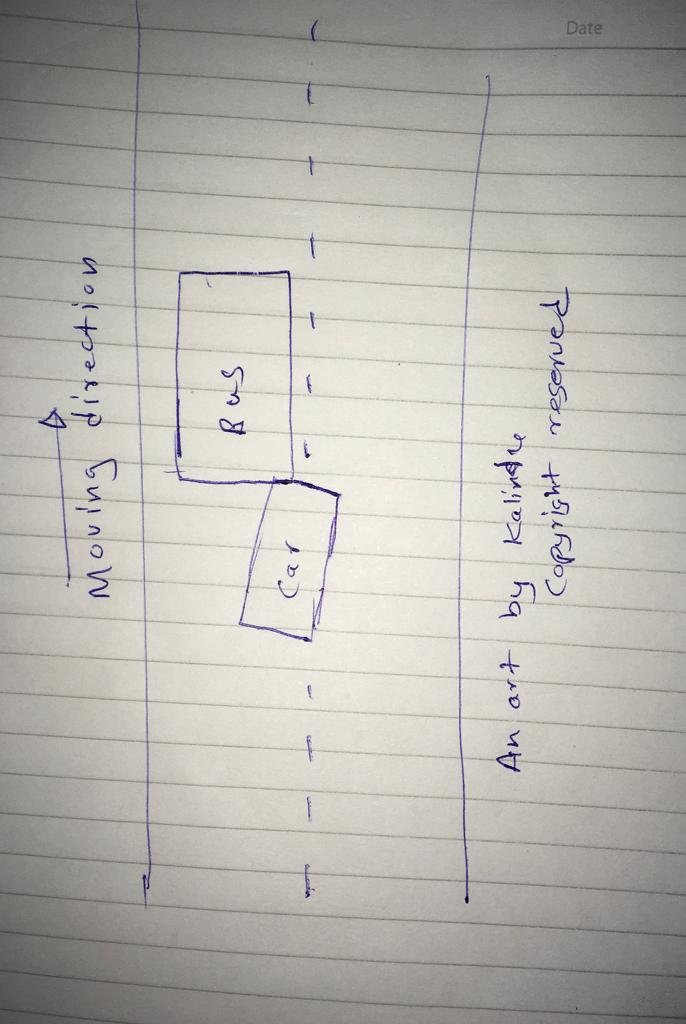 Date
Moving direction
Bus
Car
An art by Kalindu
Copyright reserved